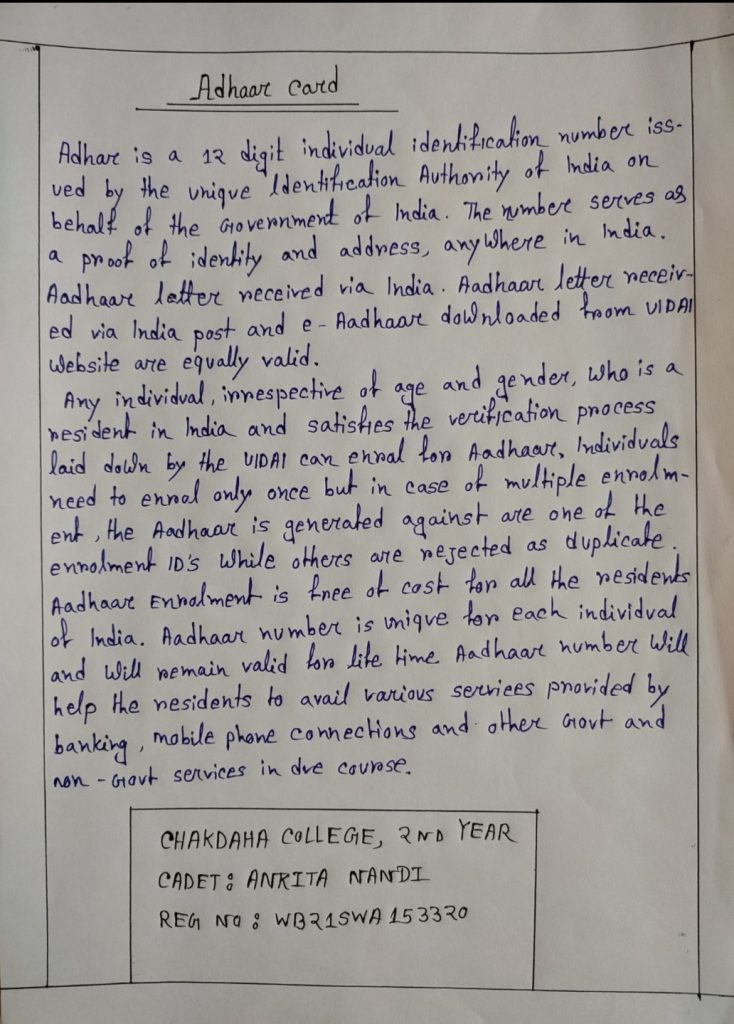 Adhaar card
Adhar is a 12 digit individual identification number iss-
ued by the unique Identification Authority of India on
behalf of the Government of India. The number serves as
a proof of identity and address, anywhere in India.
Aadhaar latter received via India. Aadhaar letter receiv-
ed via India post and e-Aadhaar downloaded from UIDAI
Website are equally valid.
Any individual, irrespective of age and gender, who is a
resident in India and satisfies the verification process
laid down by the UIDAI can enrol for Aadhaar. Individuals
need to enrol only once but in case of multiple enrolm-
ent, the Aadhaar is generated against are one of the
enrolment ID's While others are rejected as duplicate.
Aadhaar Enrolment is free of cost for all the residents
of India. Aadhaar number is unique for each individual
and Will remain valid for life time Aadhaar number Will
help the residents to avail various services provided by
banking, mobile phone connections and other Govt and
non-Govt services in due course.
CHAKDAHA COLLEGE, 2ND YEAR
CADET: ANKITA NANDI
REG NO: WB21SWA153320